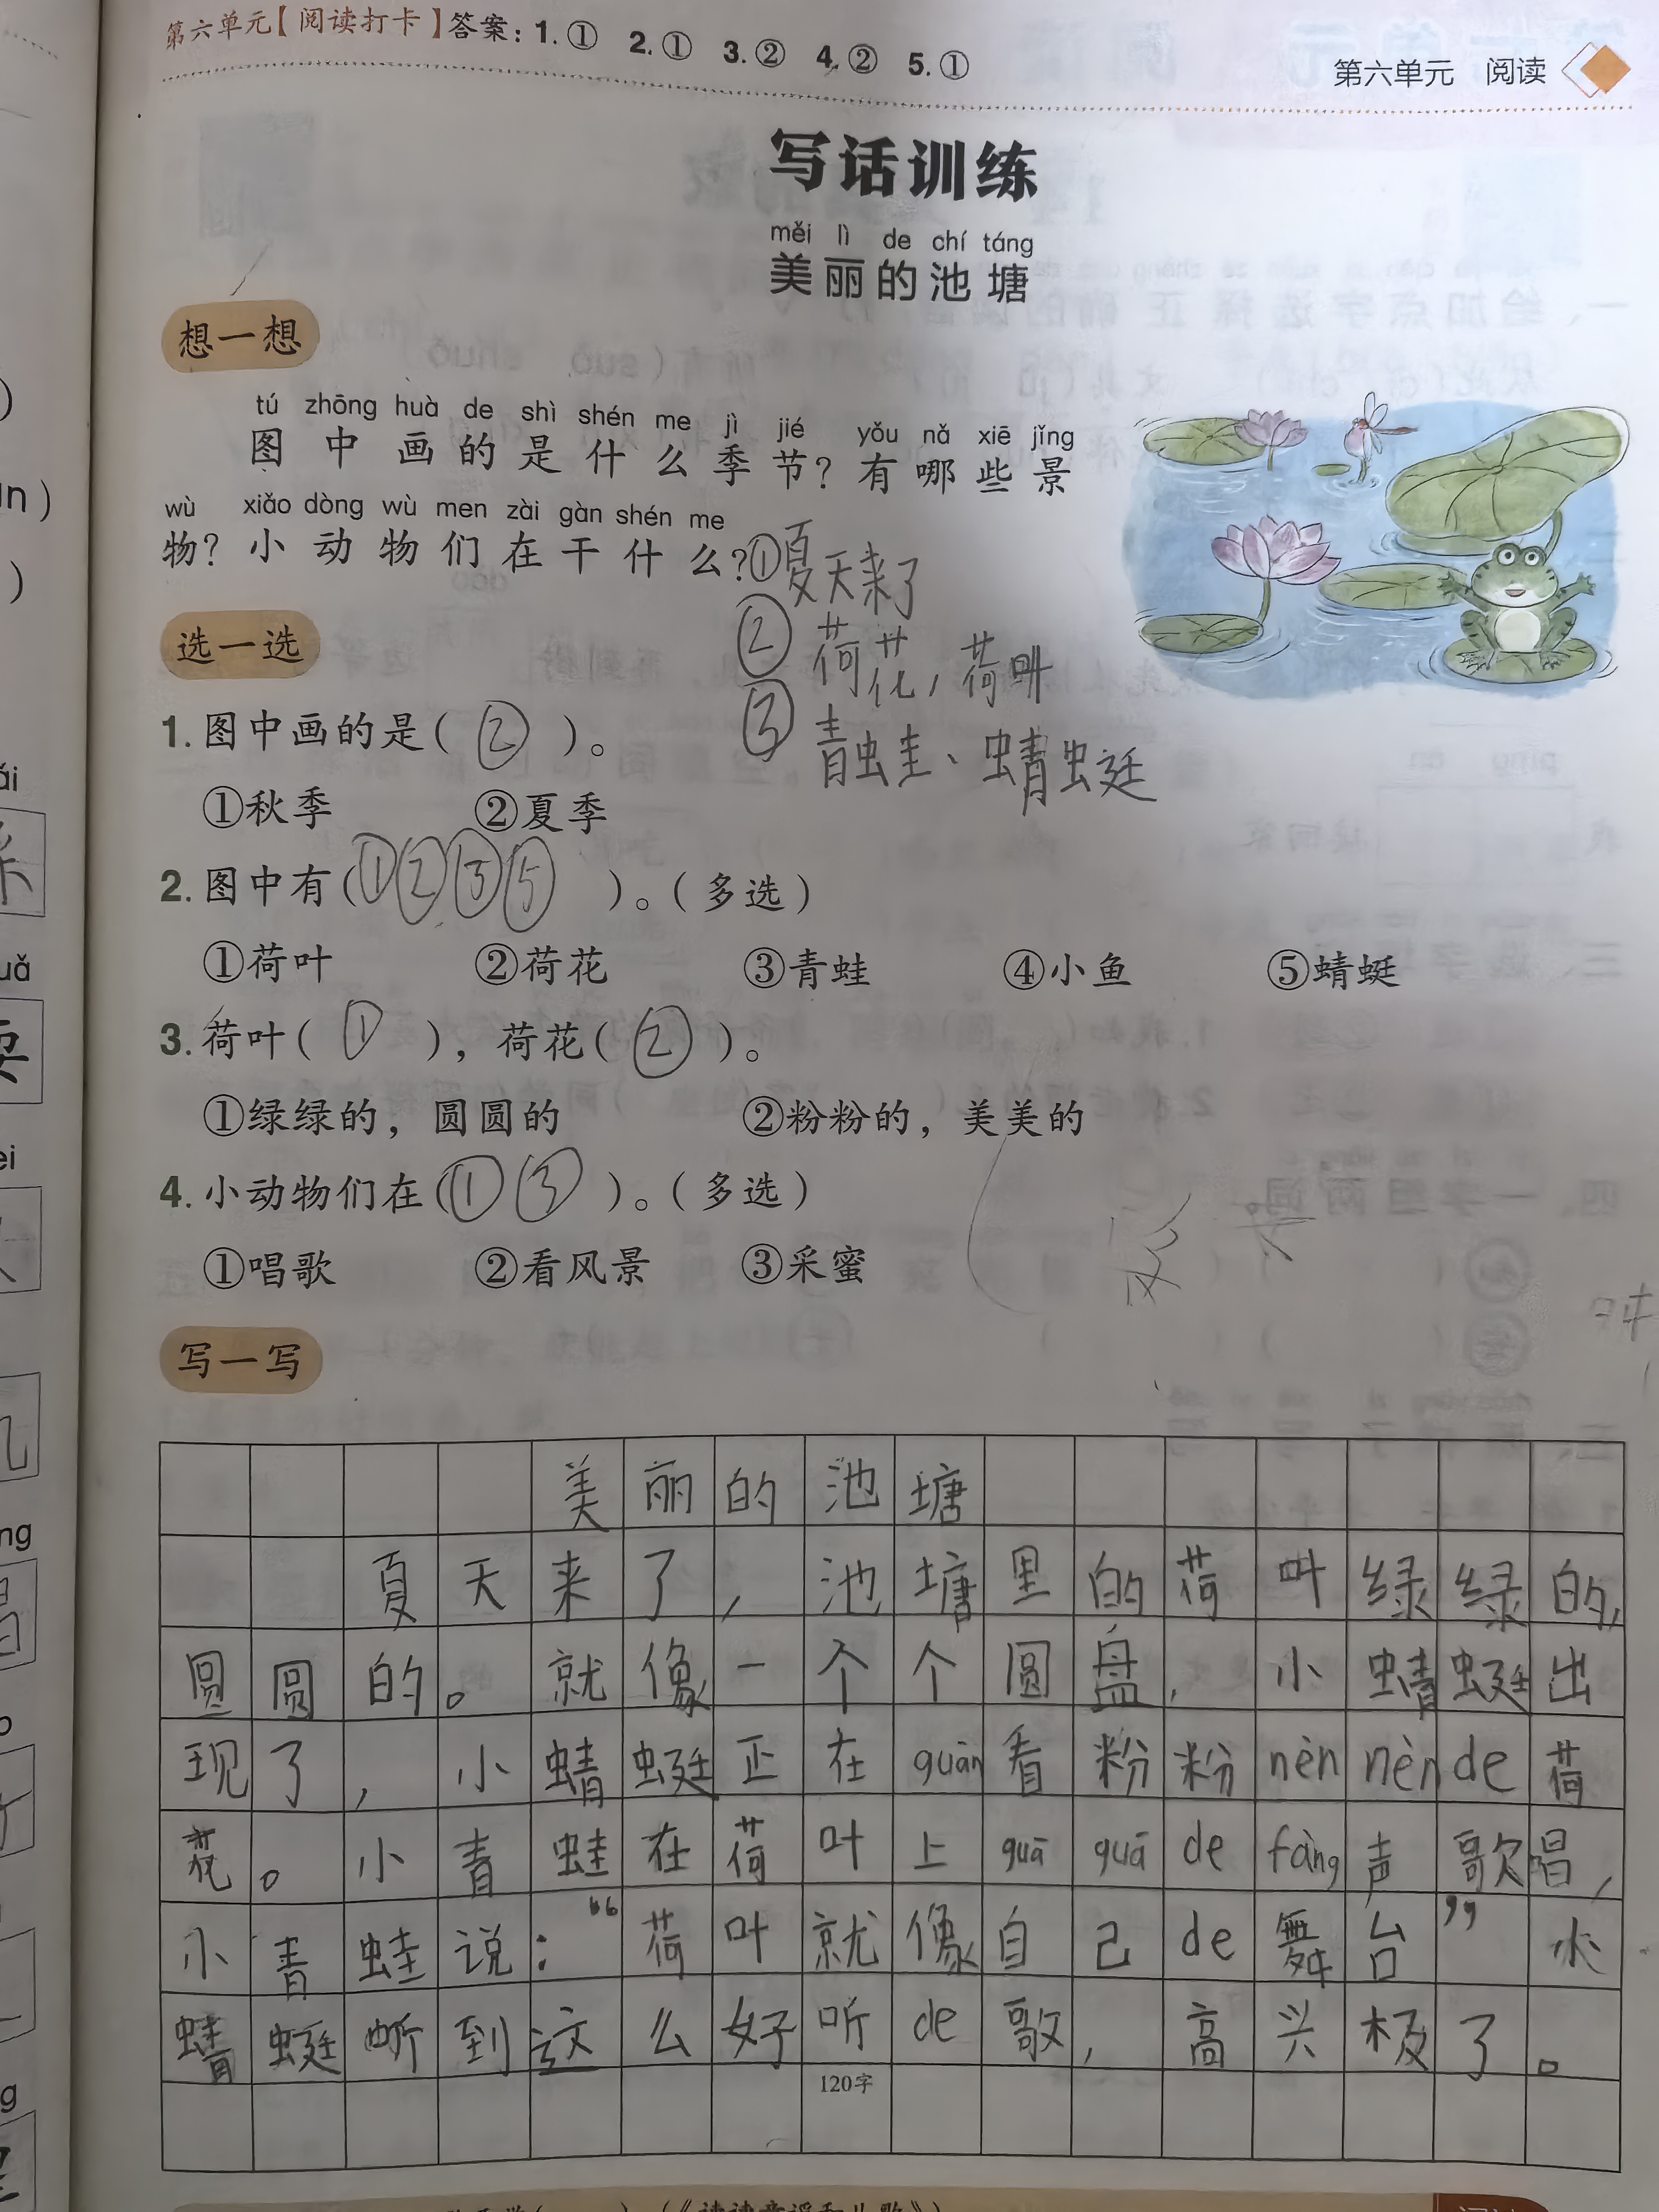 第六单元【阅读打卡】答案：1.① 2.① 3.② 4.② 5.①
第六单元 阅读
写话训练
měi lì de chí táng
美丽的池塘
想一想
tú zhōng huà de shì shén me jì jié yǒu nǎ xiē jǐng
图中画的是什么季节？有哪些景
wù xiǎo dòng wù men zài gàn shén me
物？小动物们在干什么？
①夏天来了
②荷花，荷叶
③青蛙、蜻蜓
选一选
1.图中画的是（②）。
①秋季 ②夏季
2.图中有（①②③⑤）。（多选）
①荷叶 ②荷花 ③青蛙 ④小鱼 ⑤蜻蜓
3.荷叶（①），荷花（②）。
①绿绿的，圆圆的 ②粉粉的，美美的
4.小动物们在（①③）。（多选）
①唱歌 ②看风景 ③采蜜
写一写
美丽的池塘
夏天来了，池塘里的荷叶绿绿的，
圆圆的。就像一个个圆盘，小蜻蜓出
现了，小蜻蜓正在guān看粉粉nèn nèn de荷
花。小青蛙在荷叶上guā guā de fàng声歌唱，
小青蛙说：“荷叶就像自己de舞台”小
蜻蜓听到这么好听de歌，高兴极了。
120字